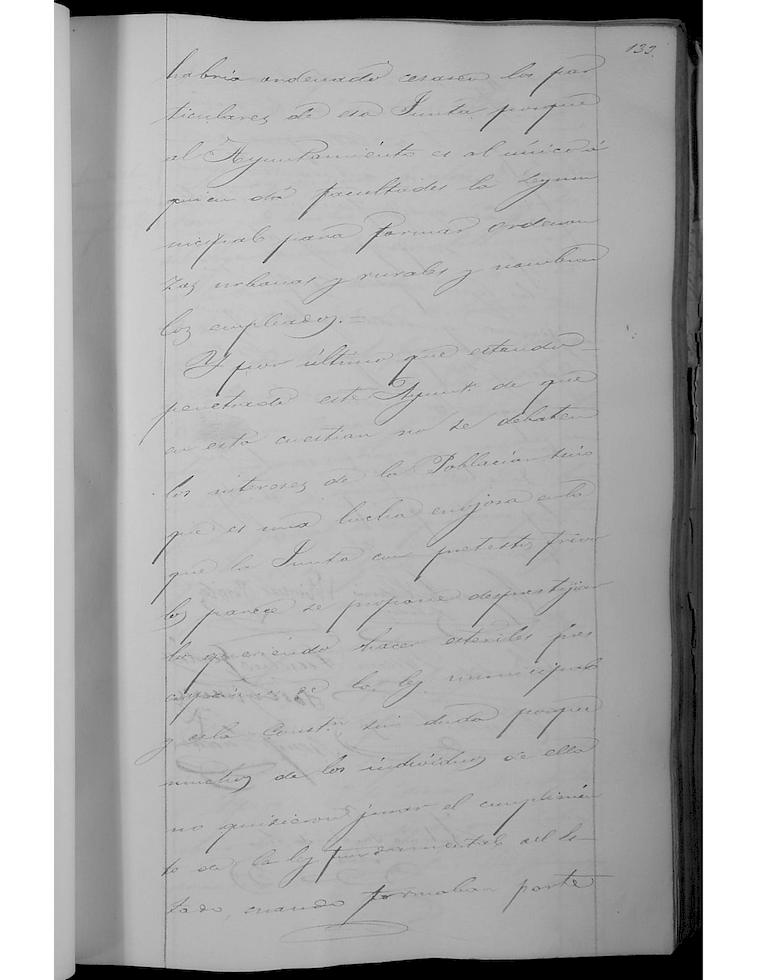 133.
habria ordenado cesasen los par
ticulares de esa Junta porque
al Ayuntamiento es al único á
quien dá facultades la Ley mu
nicipal para formar ordenan
zas urbanas y rurales y nombrar
los empleados.=
Y por último que estando
penetrado este Ayunt.º de que
en esta cuestion no se debaten
los intereses de la Poblacion sino
que es una lucha enojosa en la
que la Junta con pretestos frivo
los parece se propone desprestijiar
lo queriendo hacer esteriles
la ley municipal
y en la Const.n sin duda porque
muchos de los individuos de ella
no quisieron jurar el cumplimien
to de la ley fundamental del Es-
tado, cuando formaban parte